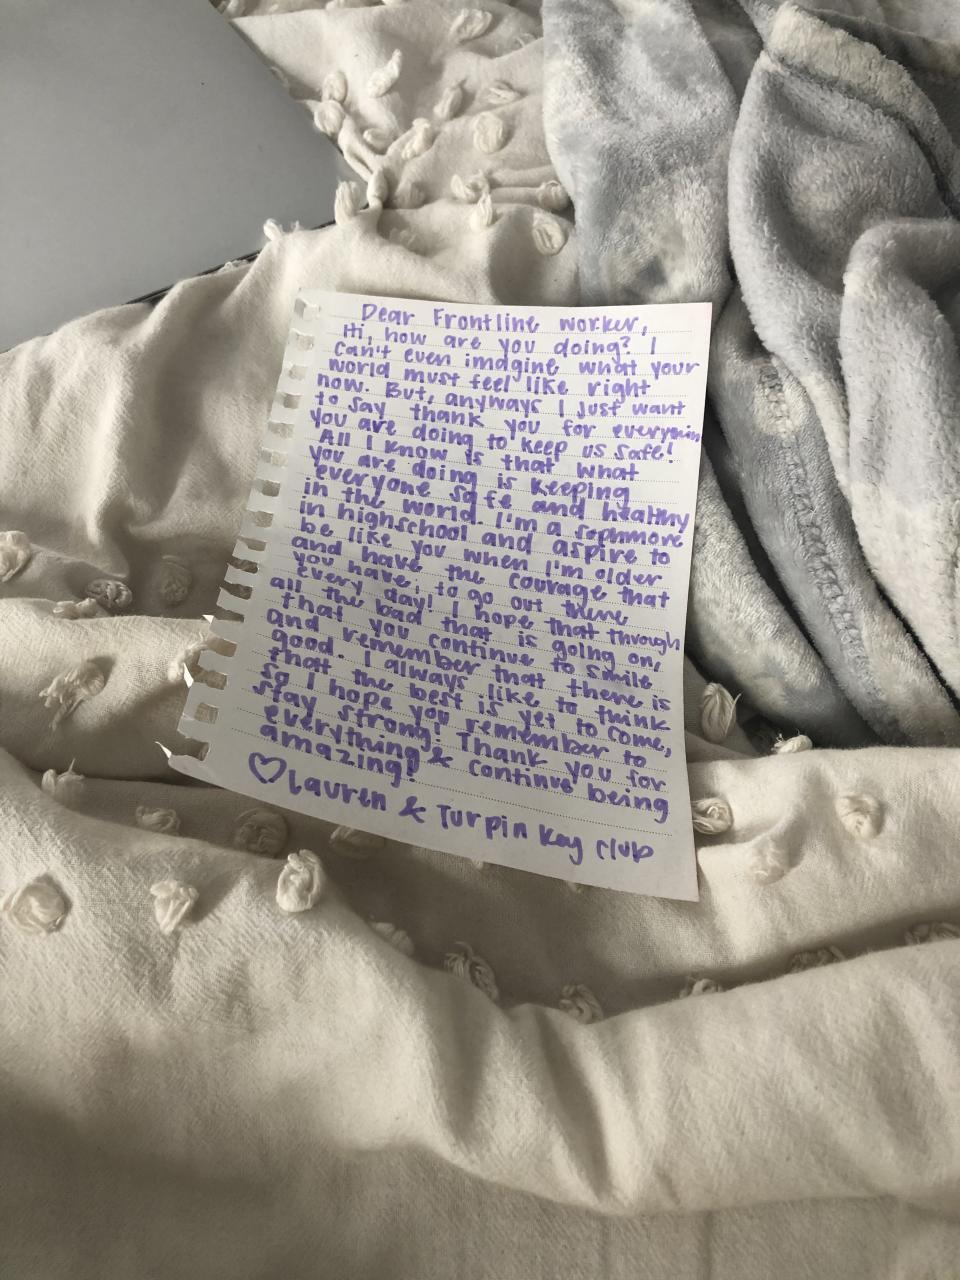 Dear Frontline worker,
Hi, how are you doing? I
can't even imagine what your
world must feel like right
now. But, anyways I just want
to say thank you for everything
you are doing to keep us safe!
All I know is that what
you are doing is keeping
everyone safe and healthy
in the world. I'm a sophmore
in highschool and aspire to
be like you when I'm older
and have the courage that
you have, to go out there
every day! I hope that through
all the bad that is going on,
that you continue to smile
and remember that there is
good. I always like to think
that the best is yet to come,
so I hope you remember to
stay strong! Thank you for
everything & continue being
amazing!
♡ Lauren & Turpin Key club